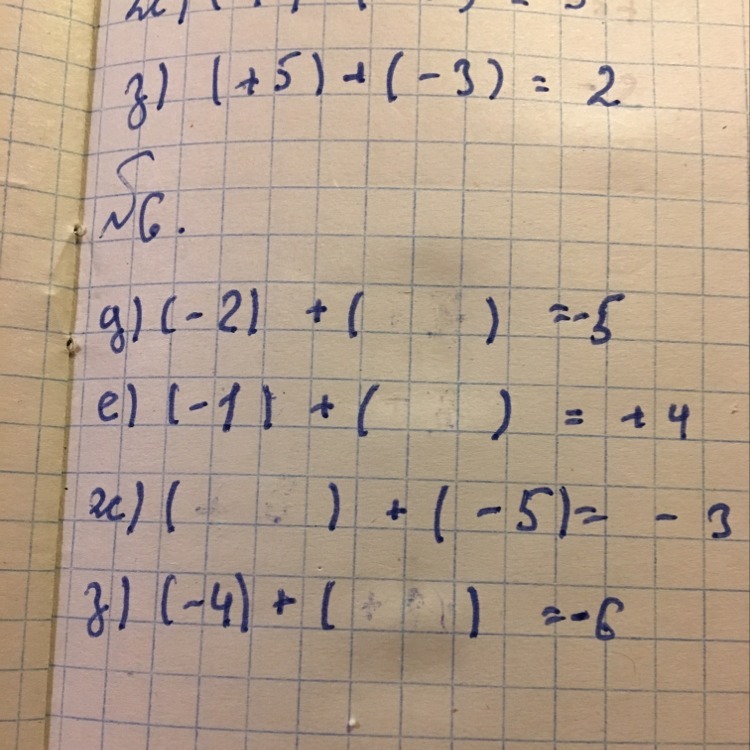 з) (+5) + (-3) = 2
№6.
д) (-2) + ( ) = -5
е) (-1) + ( ) = +4
ж) ( ) + (-5) = -3
з) (-4) + ( ) = -6